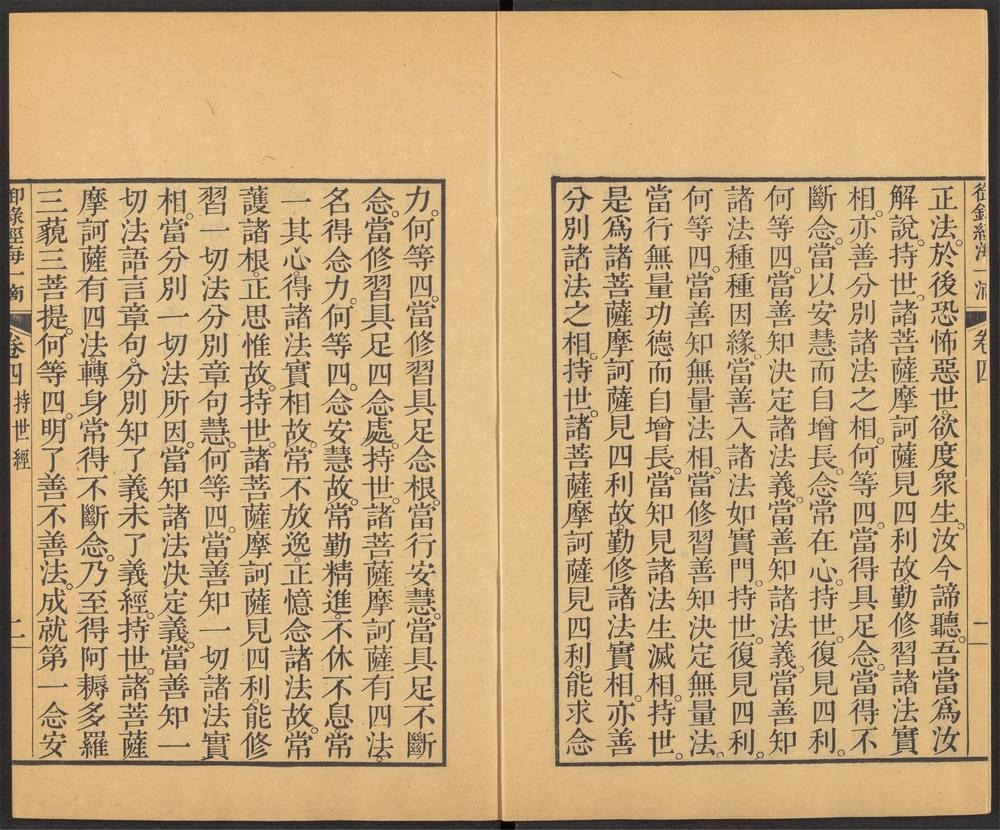 正法。於後恐怖惡世。欲度衆生。汝今諦聽。吾當爲汝
解說。持世。諸菩薩摩訶薩見四利故。勤修習諸法實
相。亦善分別諸法之相。何等四。當得具足念。當得不
斷念。當以安慧而自增長。念常在心。持世。復見四利。
何等四。當善知決定諸法義。當善知諸法義。當善知
諸法種種因緣。當善入諸法如實門。持世。復見四利。
何等四。當善知無量法相。當修習善知決定無量法。
當行無量功德而自增長。當知見諸法生滅相。持世。
是爲諸菩薩摩訶薩見四利故。勤修諸法實相。亦善
分別諸法之相。持世。諸菩薩摩訶薩見四利。能求念
力。何等四。當修習具足念根。當行安慧。當具足不斷
念。當修習具足四念處。持世。諸菩薩摩訶薩有四法。
名得念力。何等四。念安慧故。常勤精進。不休不息。常
一其心。得諸法實相故。常不放逸。正憶念諸法故。常
護諸根。正思惟故。持世。諸菩薩摩訶薩見四利。能修
習一切法分別章句慧。何等四。當善知一切諸法實
相。當分別一切法所因。當知諸法決定義。當善知一
切法語言章句。分別知了義未了義經。持世。諸菩薩
摩訶薩有四法。轉身常得不斷念。乃至得阿耨多羅
三藐三菩提。何等四。明了善不善法。成就第一念安
御錄經海一滴
卷四
持世經
二